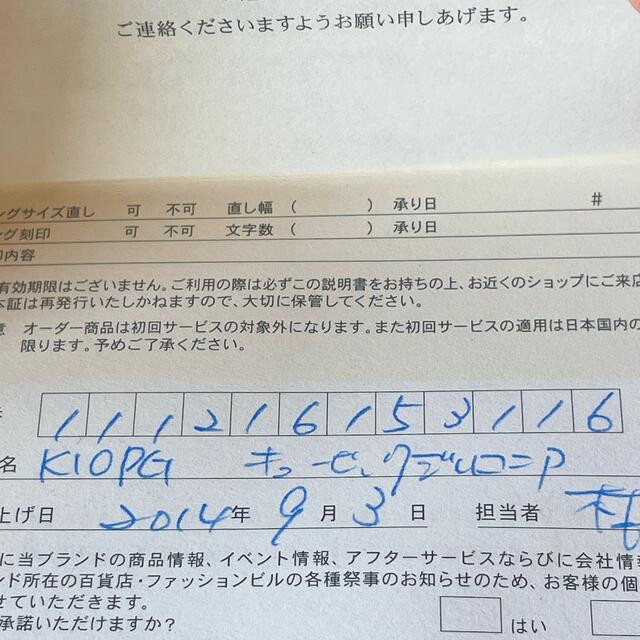 ご連絡くださいますようお願い申しあげます。
ングサイズ直し 可 不可 直し幅 ( ) 承り日 #
ング刻印 可 不可 文字数 ( ) 承り日
印内容
有効期限はございません。ご利用の際は必ずこの説明書をお持ちの上、お近くのショップにご来店
本証は再発行いたしかねますので、大切に保管してください。
意 オーダー商品は初回サービスの対象外になります。また初回サービスの適用は日本国内の
限ります。予めご了承ください。
1 1 1 2 1 6 1 5 3 1 1 6
名 K10PG キュービックジルコニアP
上げ日 2014年 9月 3日 担当者
に当ブランドの商品情報、イベント情報、アフターサービスならびに会社情報
ンド所在の百貨店・ファッションビルの各種祭事のお知らせのため、お客様の個
せていただきます。
承諾いただけますか? はい